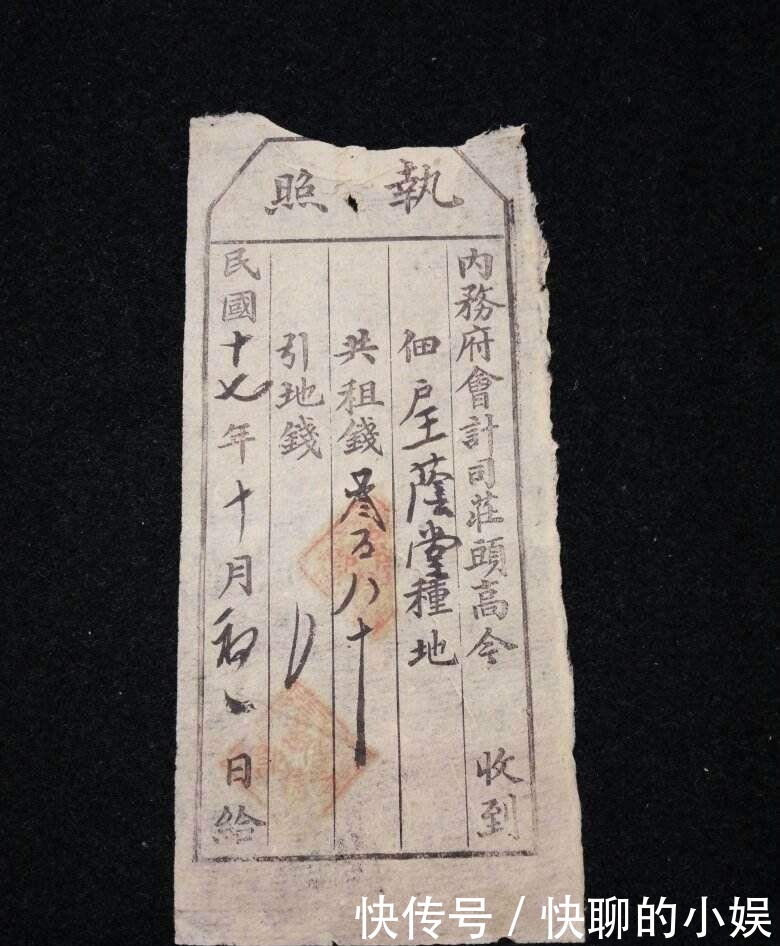 執照
內務府會計司莊頭高今收到
佃戶王蔭堂種地
共租錢叁百八十
引地錢
民國十七年十月初一日給
快传号 / 快聊的小娱